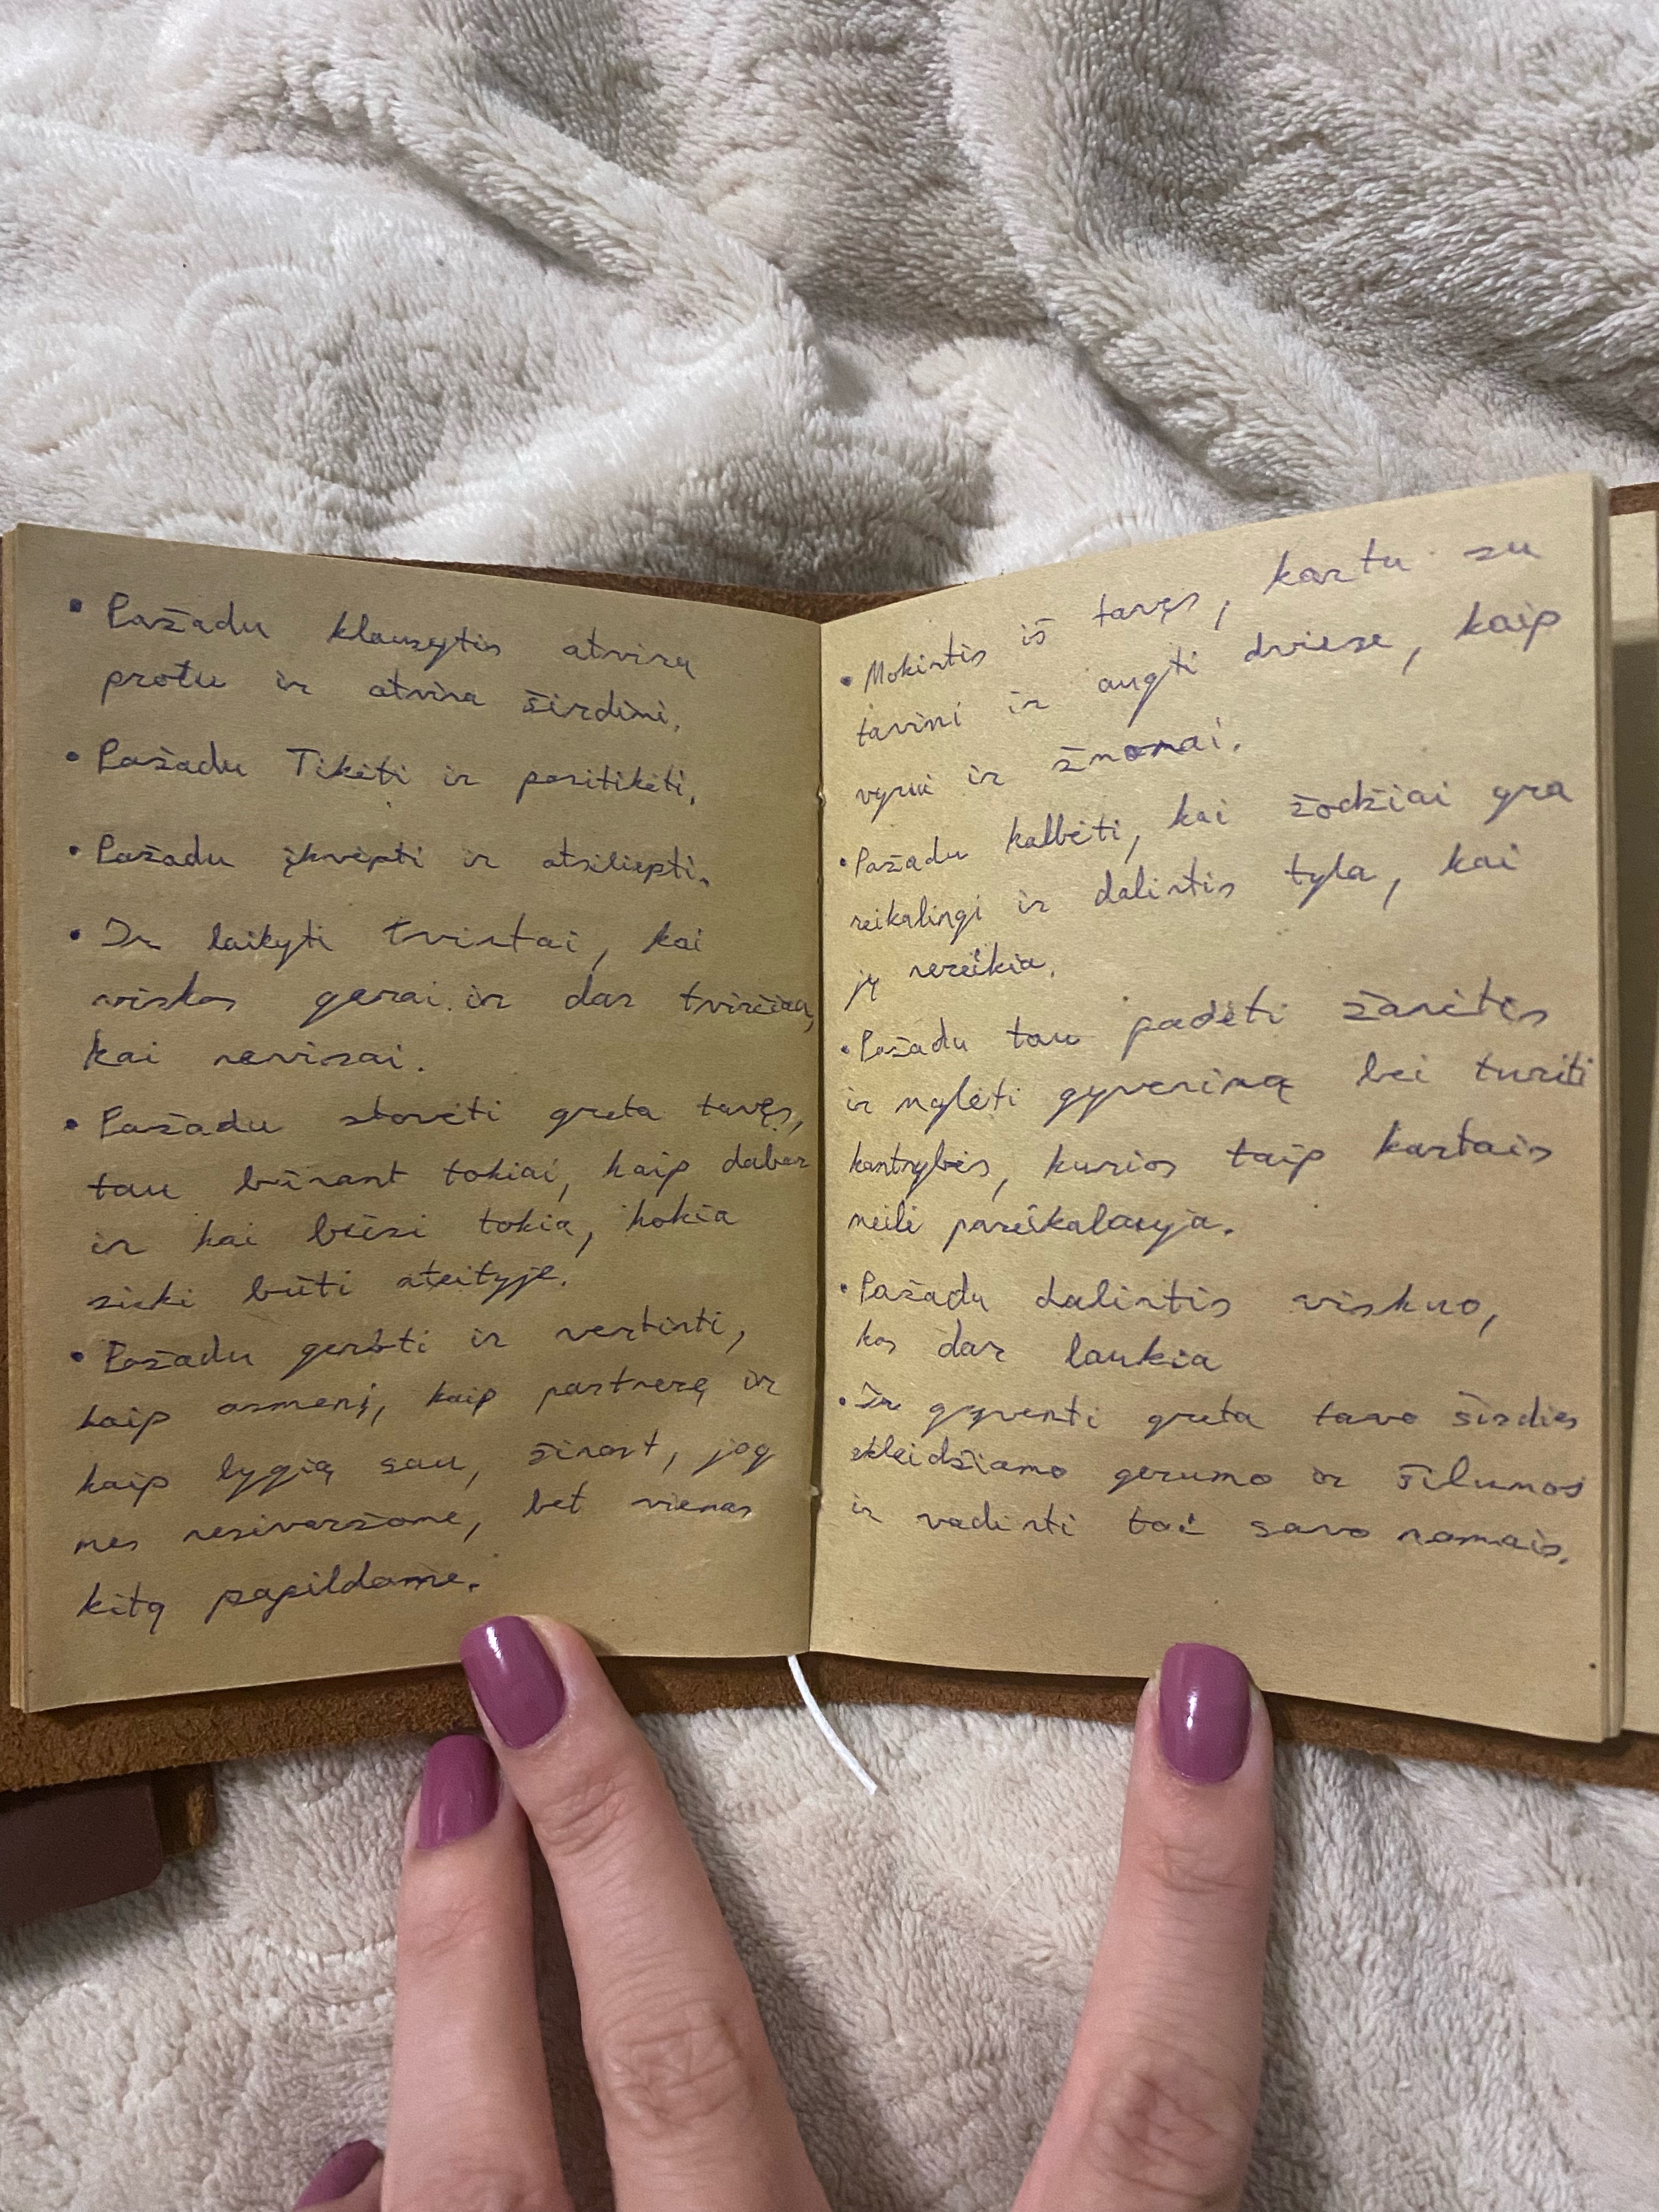 • Pažadu klausytis atvirų
protu ir atvira širdimi.
• Pažadu Tikėti ir pasitikėti.
• Pažadu įkvėpti ir atsiliepti.
• Ir laikyti tvirtai, kai
viskas gerai ir dar tvirčiau,
kai nevisai.
• Pažadu stovėti greta tavęs,
tau būnant tokiai, kaip dabar
ir kai būsi tokia, kokia
sieki būti ateityje.
• Pažadu gerbti ir vertinti,
kaip asmenį, kaip partnerę ir
kaip lygią sau, žinant, jog
mes nesivaržome, bet vienas
kitą papildome.
• Mokintis iš tavęs, kartu su
tavimi ir augti dviese, kaip
vyrui ir žmonai.
• Pažadu kalbėti, kai žodžiai yra
reikalingi ir dalintis tyla, kai
jų nereikia.
• Pažadu tau padėti žavėtis
ir mylėti gyvenimą bei turėti
kantrybės, kurios taip kartais
meilė pareikalauja.
• Pažadu dalintis viskuo,
kas dar laukia
• Ir gyventi greta tavo širdies
skleidžiamo gerumo ir šilumos
ir vadinti tai savo namais.